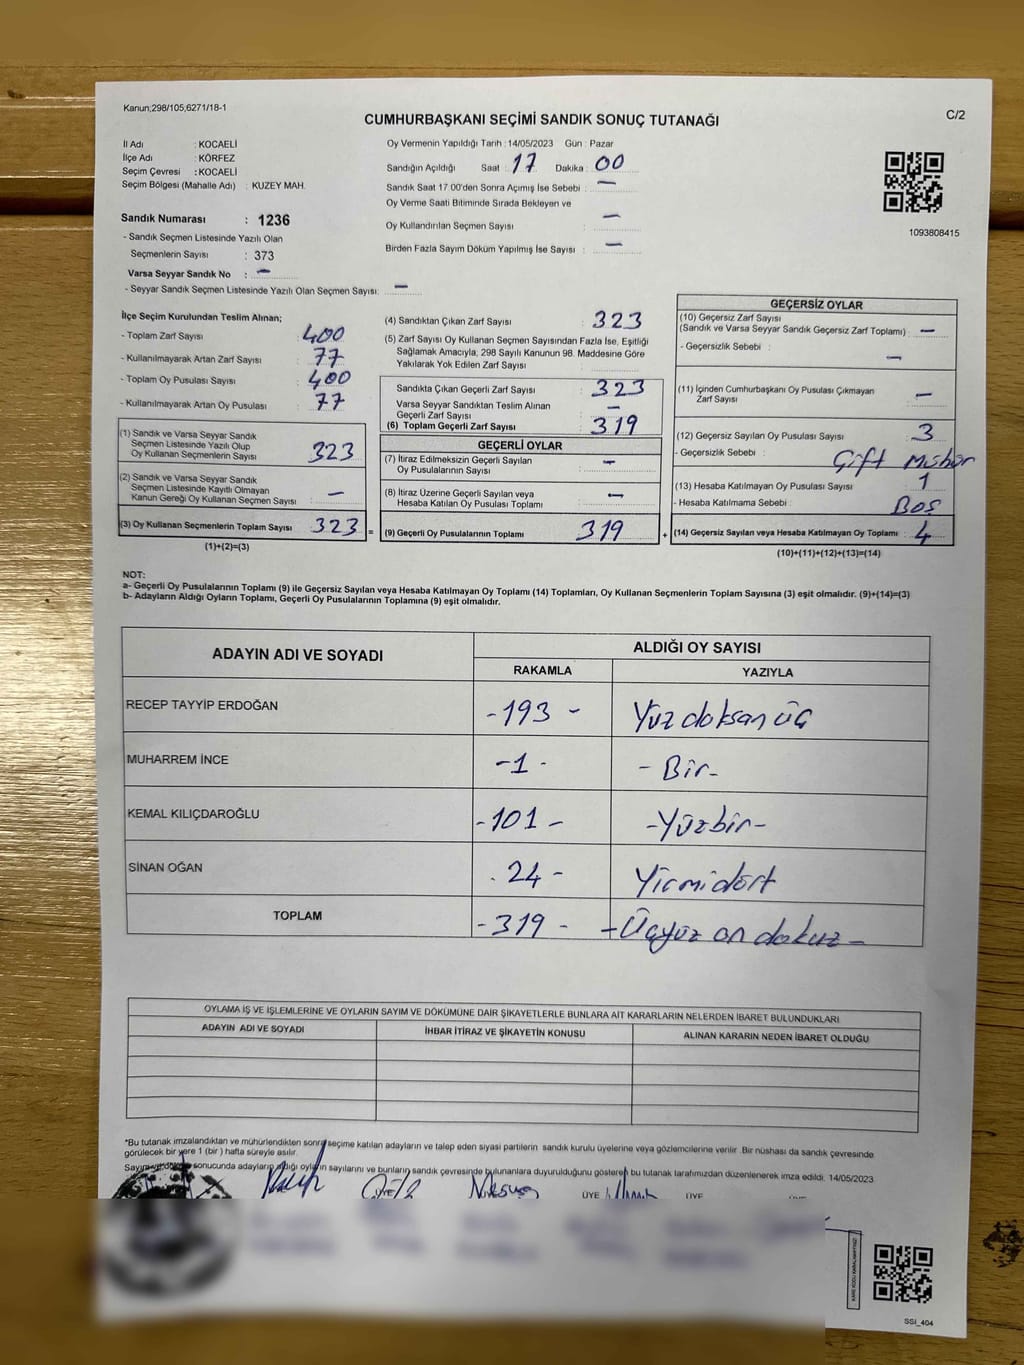 Kanun;298/105,6271/18-1
C/2
CUMHURBAŞKANI SEÇİMİ SANDIK SONUÇ TUTANAĞI
İl Adı : KOCAELİ
İlçe Adı : KÖRFEZ
Seçim Çevresi : KOCAELİ
Seçim Bölgesi (Mahalle Adı) : KUZEY MAH.
Sandık Numarası : 1236
- Sandık Seçmen Listesinde Yazılı Olan
Seçmenlerin Sayısı : 373
Varsa Seyyar Sandık No : -
- Seyyar Sandık Seçmen Listesinde Yazılı Olan Seçmen Sayısı: -
Oy Vermenin Yapıldığı Tarih : 14/05/2023 Gün : Pazar
Sandığın Açıldığı Saat : 17 Dakika : 00
Sandık Saat 17.00'den Sonra Açımış İse Sebebi : -
Oy Verme Saati Bitiminde Sırada Bekleyen ve
Oy Kullandırılan Seçmen Sayısı : -
Birden Fazla Sayım Döküm Yapılmış İse Sayısı : -
1093808415
İlçe Seçim Kurulundan Teslim Alınan;
- Toplam Zarf Sayısı : 400
- Kullanılmayarak Artan Zarf Sayısı : 77
- Toplam Oy Pusulası Sayısı : 400
- Kullanılmayarak Artan Oy Pusulası : 77
(1) Sandık ve Varsa Seyyar Sandık
Seçmen Listesinde Yazılı Olup
Oy Kullanan Seçmenlerin Sayısı : 323
(2) Sandık ve Varsa Seyyar Sandık
Seçmen Listesinde Kayıtlı Olmayan
Kanun Gereği Oy Kullanan Seçmen Sayısı : -
(3) Oy Kullanan Seçmenlerin Toplam Sayısı : 323 =
(1)+(2)=(3)
(4) Sandıktan Çıkan Zarf Sayısı : 323
(5) Zarf Sayısı Oy Kullanan Seçmen Sayısından Fazla İse, Eşitliği
Sağlamak Amacıyla, 298 Sayılı Kanunun 98. Maddesine Göre
Yakılarak Yok Edilen Zarf Sayısı :
Sandıkta Çıkan Geçerli Zarf Sayısı : 323
Varsa Seyyar Sandıktan Teslim Alınan
Geçerli Zarf Sayısı : -
(6) Toplam Geçerli Zarf Sayısı : 319
GEÇERLİ OYLAR
(7) İtiraz Edilmeksizin Geçerli Sayılan
Oy Pusulalarının Sayısı : -
(8) İtiraz Üzerine Geçerli Sayılan veya
Hesaba Katılan Oy Pusulaları Toplamı : -
(9) Geçerli Oy Pusulalarının Toplamı : 319 +
GEÇERSİZ OYLAR
(10) Geçersiz Zarf Sayısı
(Sandık ve Varsa Seyyar Sandık Geçersiz Zarf Toplamı) : -
- Geçersizlik Sebebi : -
(11) İçinden Cumhurbaşkanı Oy Pusulası Çıkmayan
Zarf Sayısı : -
(12) Geçersiz Sayılan Oy Pusulası Sayısı : 3
- Geçersizlik Sebebi : Çift Mühür
(13) Hesaba Katılmayan Oy Pusulası Sayısı : 1
- Hesaba Katılmama Sebebi : Boş
(14) Geçersiz Sayılan veya Hesaba Katılmayan Oy Toplamı : 4
(10)+(11)+(12)+(13)=(14)
NOT:
a- Geçerli Oy Pusulalarının Toplamı (9) ile Geçersiz Sayılan veya Hesaba Katılmayan Oy Toplamı (14) Toplamları, Oy Kullanan Seçmenlerin Toplam Sayısına (3) eşit olmalıdır. (9)+(14)=(3)
b- Adayların Aldığı Oyların Toplamı, Geçerli Oy Pusulalarının Toplamına (9) eşit olmalıdır.
ADAYIN ADI VE SOYADI
ALDIĞI OY SAYISI
RAKAMLA YAZIYLA
RECEP TAYYİP ERDOĞAN -193 - Yüz doksan üç
MUHARREM İNCE -1- -Bir-
KEMAL KILIÇDAROĞLU -101- -Yüzbir-
SİNAN OĞAN . 24 - Yirmidört
TOPLAM -319 - -Üçyüz on dokuz-
OYLAMA İŞ VE İŞLEMLERİNE VE OYLARIN SAYIM VE DÖKÜMÜNE DAİR ŞİKAYETLERLE BUNLARA AİT KARARLARIN NELERDEN İBARET BULUNDUKLARI
ADAYIN ADI VE SOYADI İHBAR İTİRAZ VE ŞİKAYETİN KONUSU ALINAN KARARIN NEDEN İBARET OLDUĞU
*Bu tutanak imzalandıktan ve mühürlendikten sonra seçime katılan adayların ve talep eden siyasi partilerin sandık kurulu üyelerine veya gözlemcilerine verilir. Bir nüshası da sandık çevresinde
görülecek bir yere 1 (bir ) hafta süreyle asılır.
sonucunda adayların aldığı oyların sayılarını ve bunların sandık çevresinde bulunanlara duyurulduğunu gösteren bu tutanak tarafımızdan düzenlenerek imza edildi. 14/05/2023
ÜYE ÜYE
SSI_404